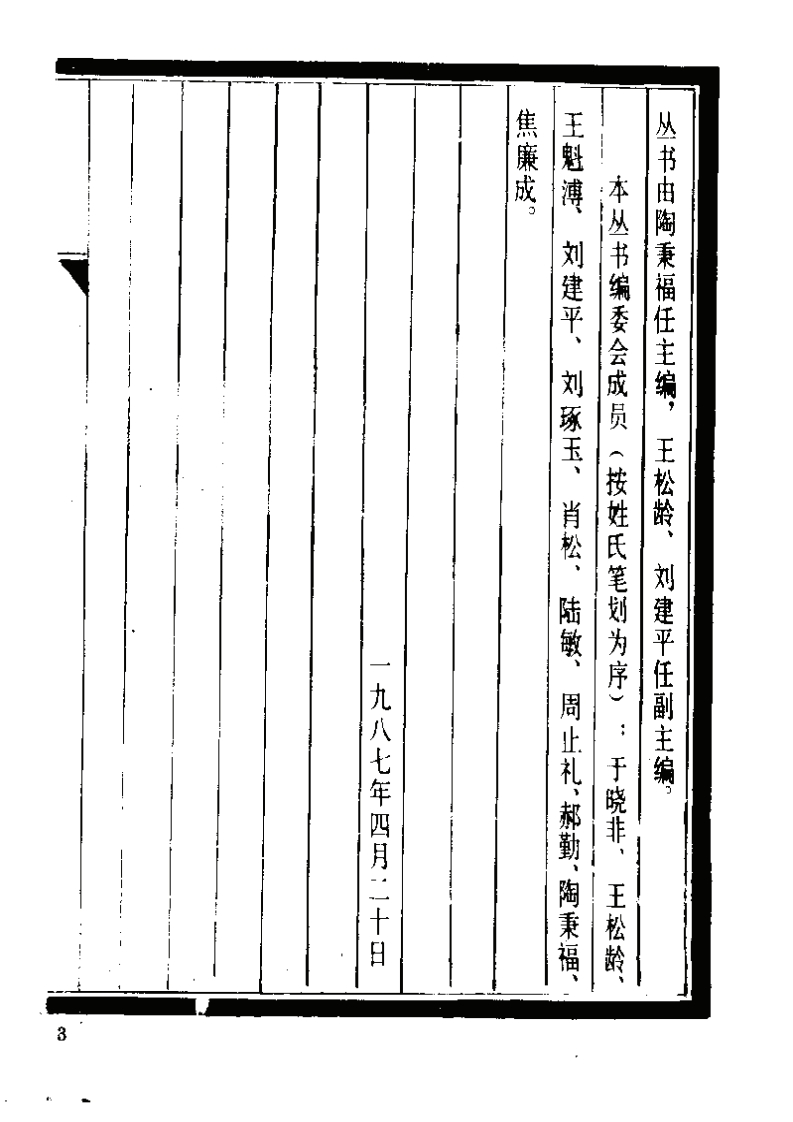 丛书由陶秉福任主编，王松龄、刘建平任副主编。
本丛书编委会成员（按姓氏笔划为序）：于晓非、王松龄、
王魁溥、刘建平、刘琢玉、肖松、陆敏、周止礼、郝勤、陶秉福、
焦廉成。
一九八七年四月二十日
3